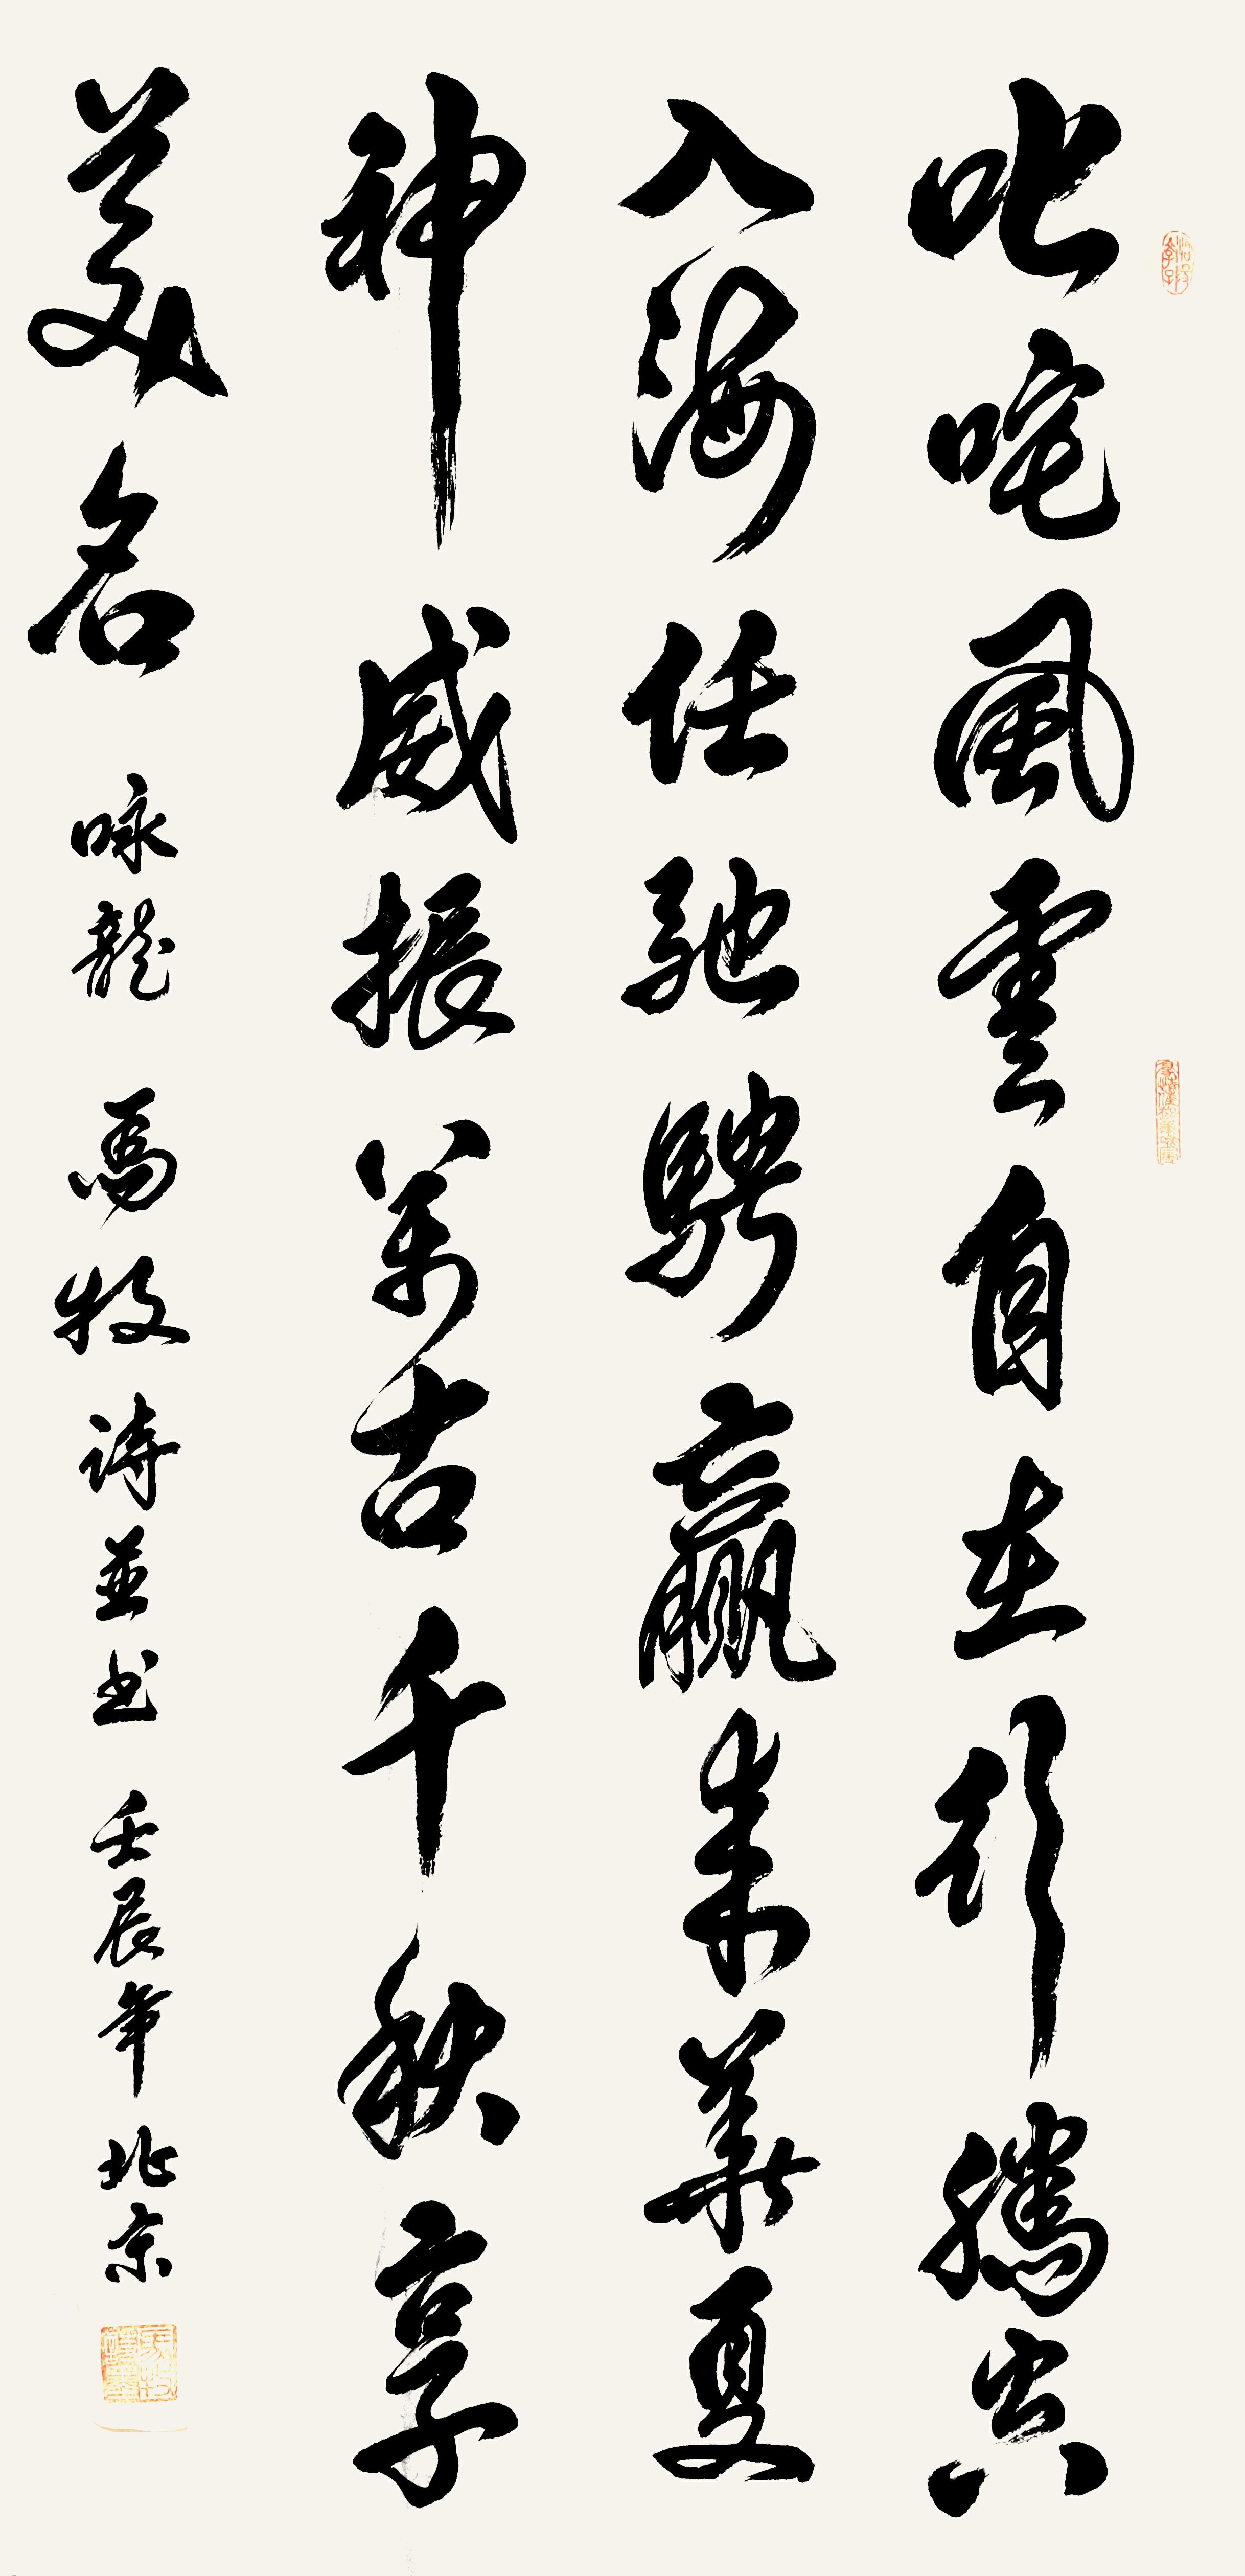 叱咤風雲自在行騰空
入海任馳騁贏來華夏
神威振萬古千秋享
美名 咏龍 馬牧詩並书 壬辰年北京